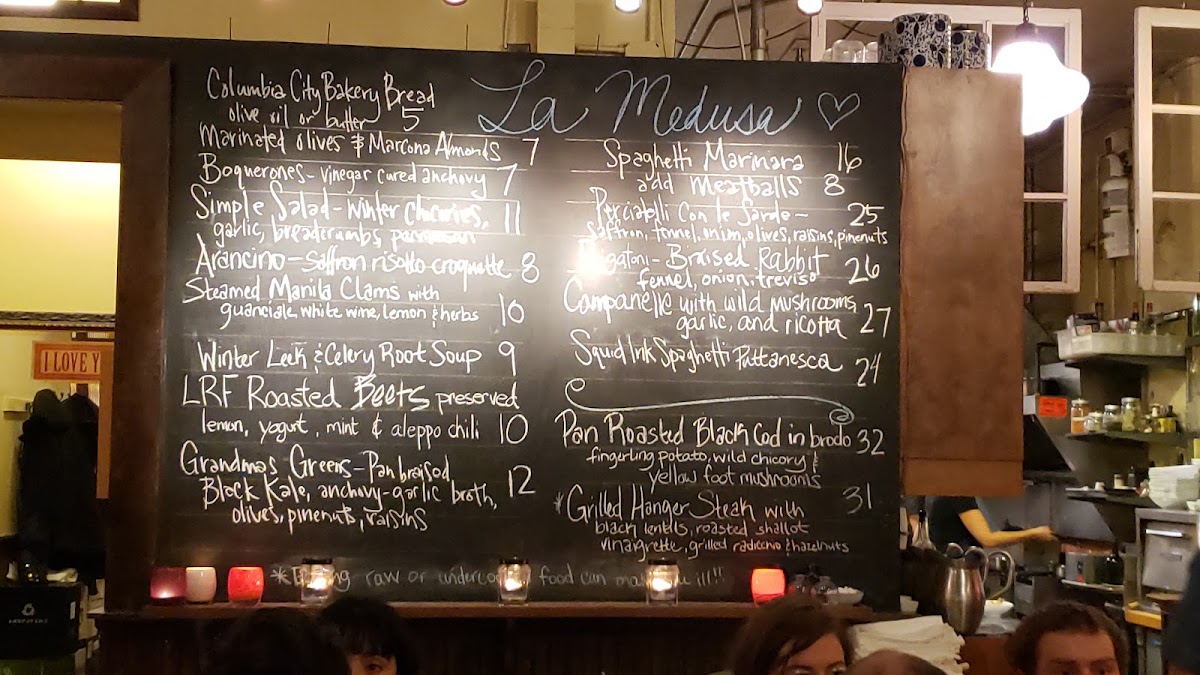 La Medusa ♡
Columbia City Bakery Bread
olive oil or butter 5
Marinated olives & Marcona Almonds 7
Boquerones - vinegar cured anchovy 7
Simple Salad - winter chicories, 11
garlic, breadcrumbs, parmesan
Arancino - saffron risotto croquette 8
Steamed Manila Clams with
guanciale, white wine, lemon & herbs 10
Winter Leek & Celery Root Soup 9
LRF Roasted Beets preserved
lemon, yogurt, mint & aleppo chili 10
Grandmas Greens - Pan braised
Black Kale, anchovy-garlic broth, 12
olives, pinenuts, raisins
Spaghetti Marinara 16
add Meatballs 8
Perciatelli Con le Sarde - 25
saffron, fennel, onion, olives, raisins, pinenuts
Rigatoni - Braised Rabbit 26
fennel, onion, treviso
Campanelle with wild mushrooms,
garlic, and ricotta 27
Squid Ink Spaghetti Puttanesca 24
Pan Roasted Black Cod in brodo 32
fingerling potato, wild chicory &
yellow foot mushrooms
*Grilled Hanger Steak with 31
black lentils, roasted shallot
vinaigrette, grilled radicchio & hazelnuts
raw or food can ill!!
I LOVE Y